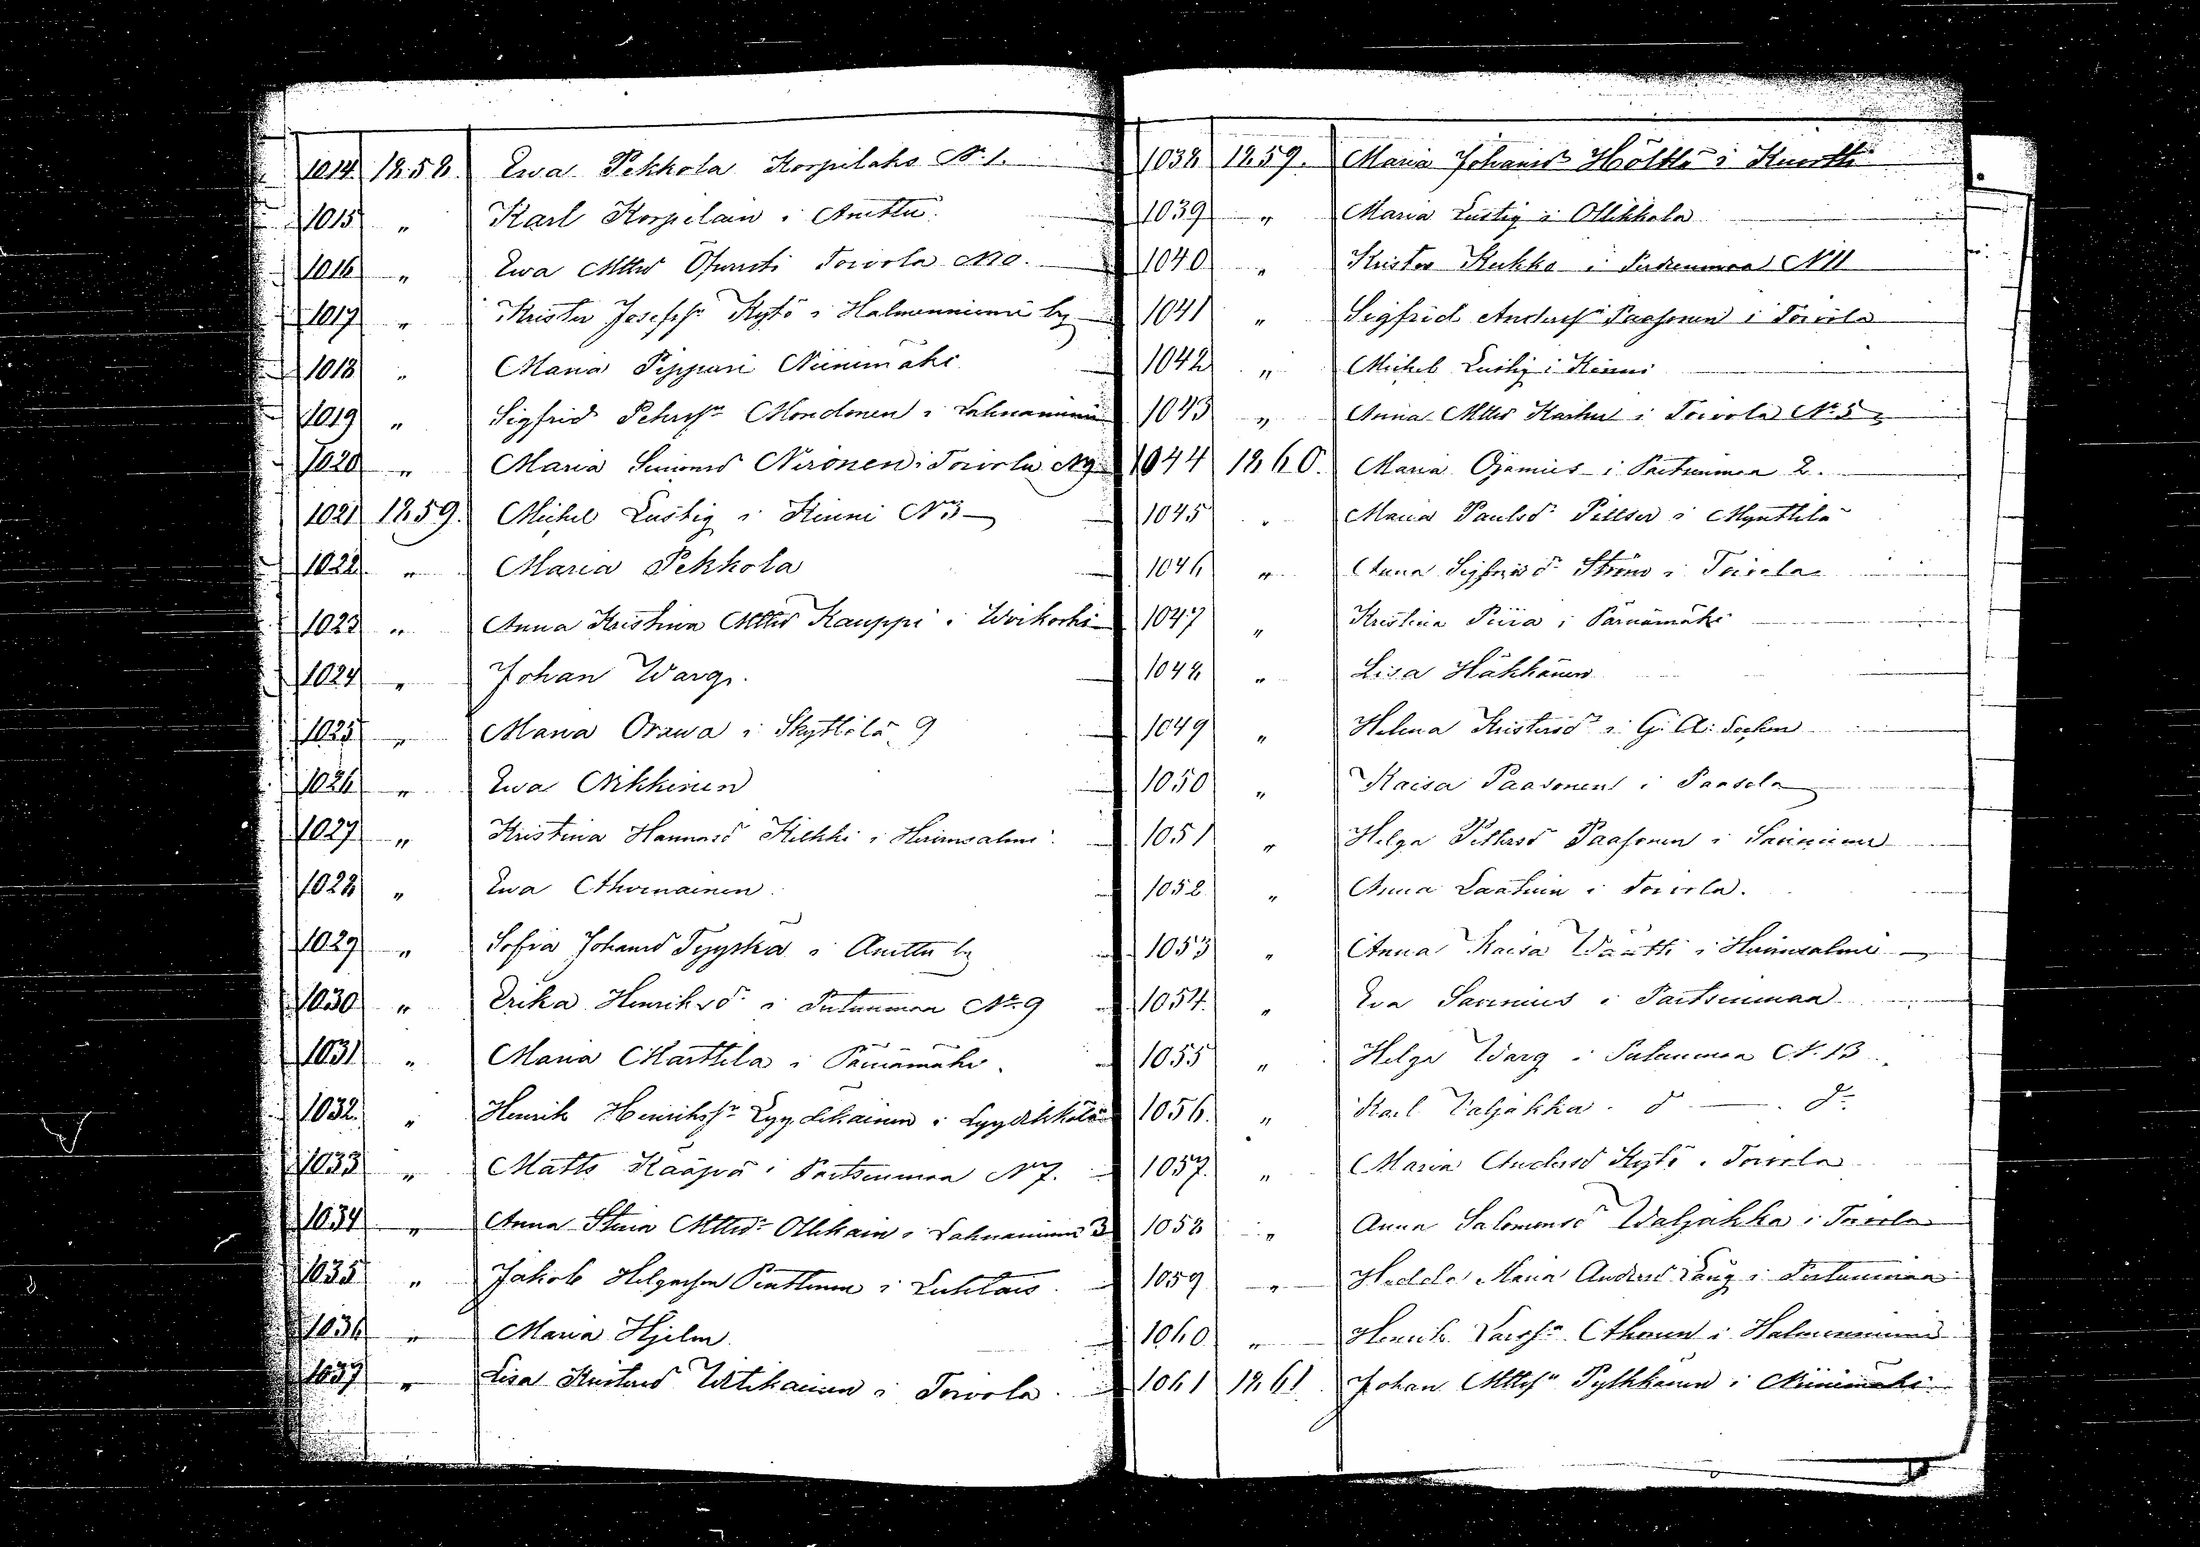 1014 1858. Ewa Pekkola Korpilaks N:1.
1015 " Karl Korpelain i Anttu
1016 " Ewa Mttsd Toivola
1017 " Krister Josefss. Kytö i Halmenniemi by
1018 " Maria Pippuri Niinimäki
1019 " Sigfrid Pehrss. Mondonen i Lahnaniemi
1020 " Maria Simonsd Nironen i Toivola N9
1021 1859. Michel Lustig i Kinni N3
1022 " Maria Pekkola
1023 " Anna Kristina Mttsd Kauppi i
1024 " Johan Warg.
1025 " Maria Orawa i Skyttilä 9
1026 " Ewa Nikkinen
1027 " Kristina Hannusd Kilkki i Hurissalmi
1028 " Ewa Ahvenainen.
1029 " Sofia Johansd Tyyskä i Anttu by
1030 " Erika Henriksd. i N:9
1031 " Maria Marttila i Pärnämäki.
1032. " Henrik Henrikss. Lyytikäinen i Lyytikkälä
1033 " Matts Kääpä i Partsenmaa N7.
1034 " Anna Stina Mttsd. Ollikain i Lahnaniemi 3
1035 " Jakob Helgesson Penttinen i
1036 " Maria Hjelm
1037 " Lisa Kristersd i Toivola.
1038 1859. Maria Johansd. Hölttä i Kuortti
1039 " Maria Lustig i Ollikkala
1040 " Krister Kukko i N11
1041 " Sigfrid Anderss. Paasonen i Toivola
1042 " Michel Lustig i Kinni
1043 " Anna Mttsd Karhu i Toivola N:5
1044 1860. Maria Ojamies i Partsenmaa 2.
1045 " Maria Paulsd. i Mynttilä
1046 " Anna Sigfridsd. Ström i Toivola
1047 " Kristina Piira i Pärnämäki
1048 " Lisa Häkkänen
1049 " Helena Kristersd. i G. A: Socken
1050 " Kaisa Paasonen i Paasola
1051 " Helga Pettersd Paasonen i
1052 " Anna Laatuin i Toivola.
1053 " Anna Kaisa Väätti i Hurissalmi
1054. " Eva Savenius i Partsenmaa
1055 " Helga Warg i N. 13
1056. " Karl Valjakka. d:o d:o
1057. " Maria Andersd Kytö i Toivola
1058 " Anna Salomonsd Waljakka i Toivola
1059 " Hedda Maria Andersd Lang i
1060 " Henrik Larss. Ahonen i Halmenniemi
1061 1861. Johan Mttss. Pylkkänen i Niinimäki